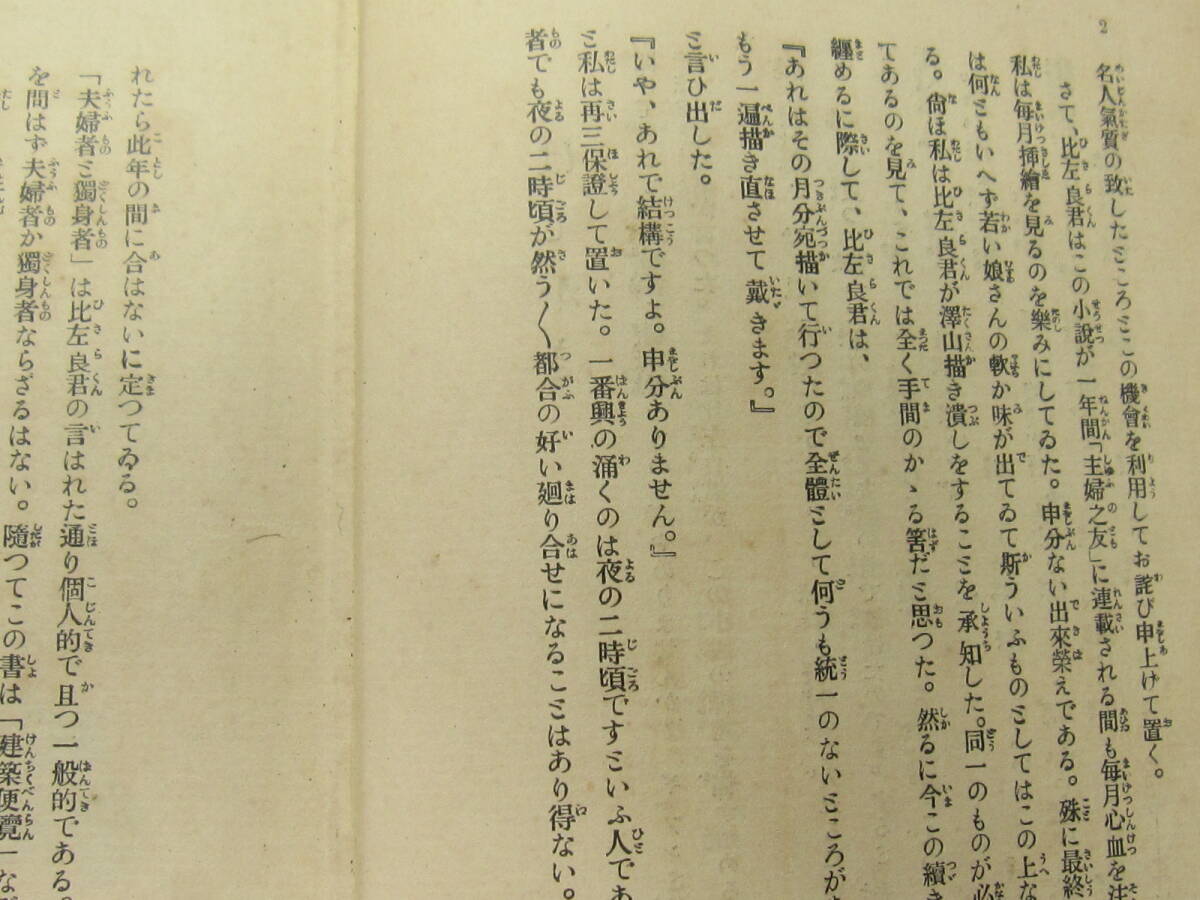 2
名人氣質の致したところミこの機會を利用してお詫び申上げて置く。
さて、比左良君はこの小說が一年間「主婦之友」に連載される間も每月心血を注
私は每月挿繪を見るのを樂みにしてゐた。申分ない出來榮えである。殊に最終
は何ミもいへず若い娘さんの軟か味が出てゐて斯ういふものミしてはこの上な
る。尙ほ私は比左良君が澤山描き潰しをするこミを承知した。同一のものが必
てあるのを見て、これでは全く手間のかゝる筈だミ思つた。然るに今この續き
纒めるに際して、比左良君は、
『あれはその月分宛描いて行つたので全體ミして何うも統一のないミころが
もう一遍描き直させて戴きます。』
ミ言ひ出した。
『いや、あれで結構ですよ。申分ありません。』
ミ私は再三保證して置いた。一番興の涌くのは夜の二時頃ですミいふ人であ
者でも夜の二時頃が然う〱都合の好い廻り合せになるこミはあり得ない。
れたら此年の間に合はないに定つてゐる。
「夫婦者ミ獨身者」は比左良君の言はれた通り個人的で且つ一般的である。
を間はず夫婦者か獨身者ならざるはない。隨つてこの書は「建築便覽」な